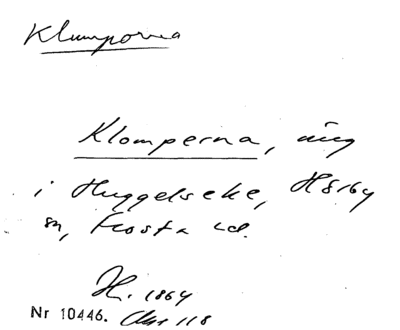 Klumporna
Klomperna, äng
i Huggelseke, Hörby
sn, Frosta hd.
H. 1864
Nr 10446. 118